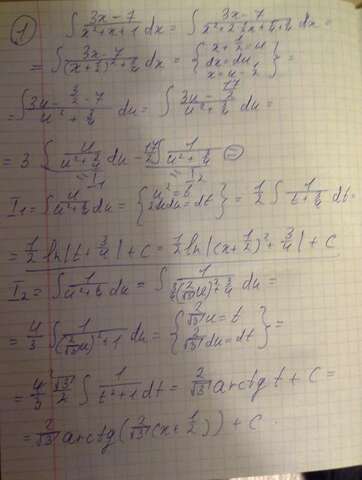 ① ∫ (3x-7)/(x²+x+1) dx = ∫ (3x-7)/(x²+2·½x+¼+¾) dx =
= ∫ (3x-7)/((x+½)²+¾) dx = { x+½=u dx=du x=u-½ } =
= ∫ (3u-3/2-7)/(u²+¾) du = ∫ (3u-17/2)/(u²+¾) du =
= 3 ∫ u/(u²+¾) du - 17/2 ∫ 1/(u²+¾) =
= I₁ = I₂
I₁ = ∫ u/(u²+¾) du = { u²=t 2udu=dt } = ½ ∫ 1/(t+¾) dt =
= ½ ln|t+¾| + c = ½ ln|(x+½)²+¾| + c
I₂ = ∫ 1/(u²+¾) du = ∫ 1/(¾(2/√3 u)²+¾) du =
= 4/3 ∫ 1/((2/√3 u)²+1) du = { 2/√3 u = t 2/√3 du = dt } =
= 4/3 · √3/2 ∫ 1/(t²+1) dt = 2/√3 arctg t + C =
= 2/√3 arctg(2/√3 (x+½)) + C.